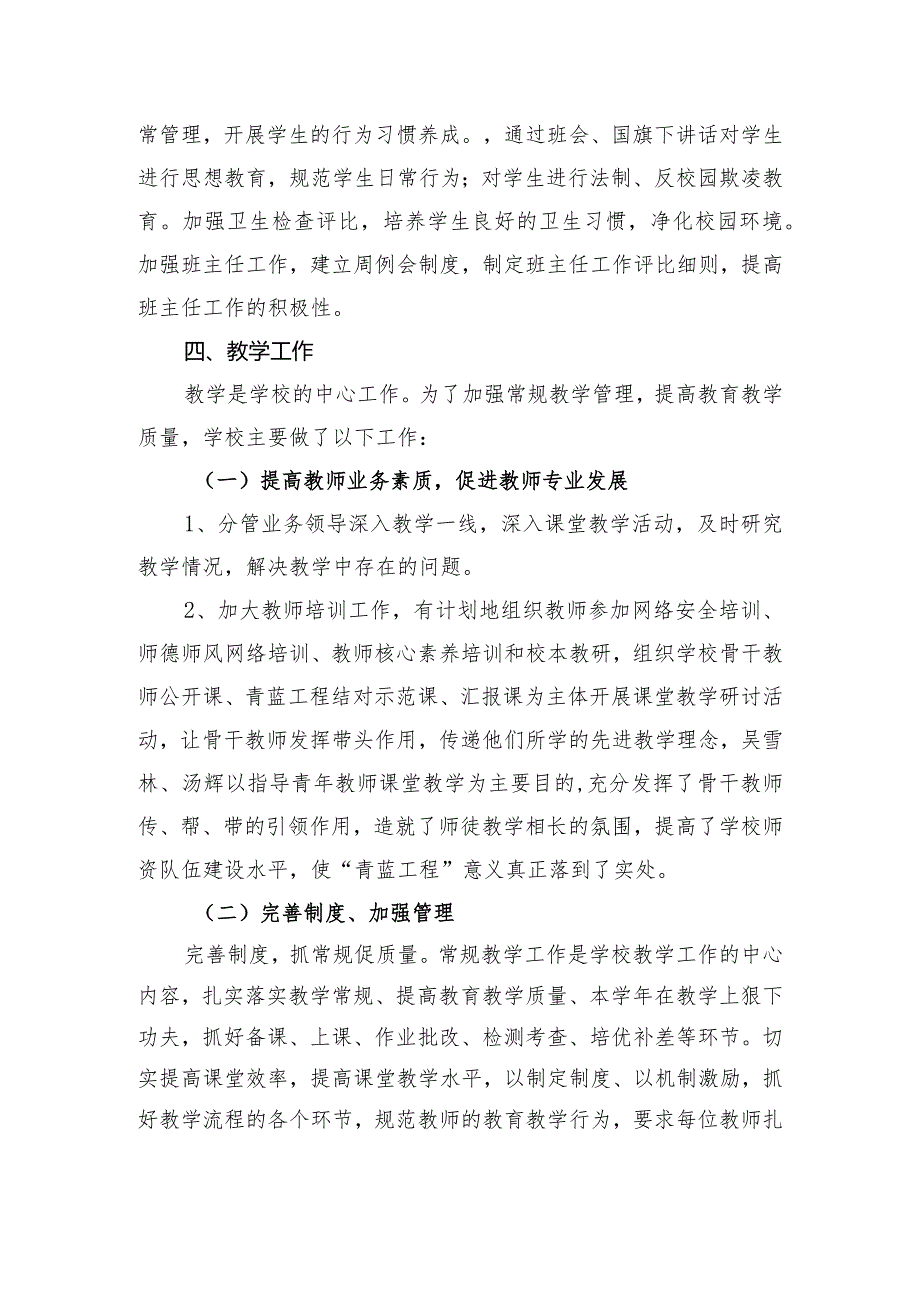 常管理，开展学生的行为习惯养成。，通过班会、国旗下讲话对学生
进行思想教育，规范学生日常行为；对学生进行法制、反校园欺凌教
育。加强卫生检查评比，培养学生良好的卫生习惯，净化校园环境。
加强班主任工作，建立周例会制度，制定班主任工作评比细则，提高
班主任工作的积极性。
四、教学工作
教学是学校的中心工作。为了加强常规教学管理，提高教育教学
质量，学校主要做了以下工作：
（一）提高教师业务素质，促进教师专业发展
1、分管业务领导深入教学一线，深入课堂教学活动，及时研究
教学情况，解决教学中存在的问题。
2、加大教师培训工作，有计划地组织教师参加网络安全培训、
师德师风网络培训、教师核心素养培训和校本教研，组织学校骨干教
师公开课、青蓝工程结对示范课、汇报课为主体开展课堂教学研讨活
动，让骨干教师发挥带头作用，传递他们所学的先进教学理念，吴雪
林、汤辉以指导青年教师课堂教学为主要目的,充分发挥了骨干教师
传、帮、带的引领作用，造就了师徒教学相长的氛围，提高了学校师
资队伍建设水平，使“青蓝工程”意义真正落到了实处。
（二）完善制度、加强管理
完善制度，抓常规促质量。常规教学工作是学校教学工作的中心
内容，扎实落实教学常规、提高教育教学质量、本学年在教学上狠下
功夫，抓好备课、上课、作业批改、检测考查、培优补差等环节。切
实提高课堂效率，提高课堂教学水平，以制定制度、以机制激励，抓
好教学流程的各个环节，规范教师的教育教学行为，要求每位教师扎